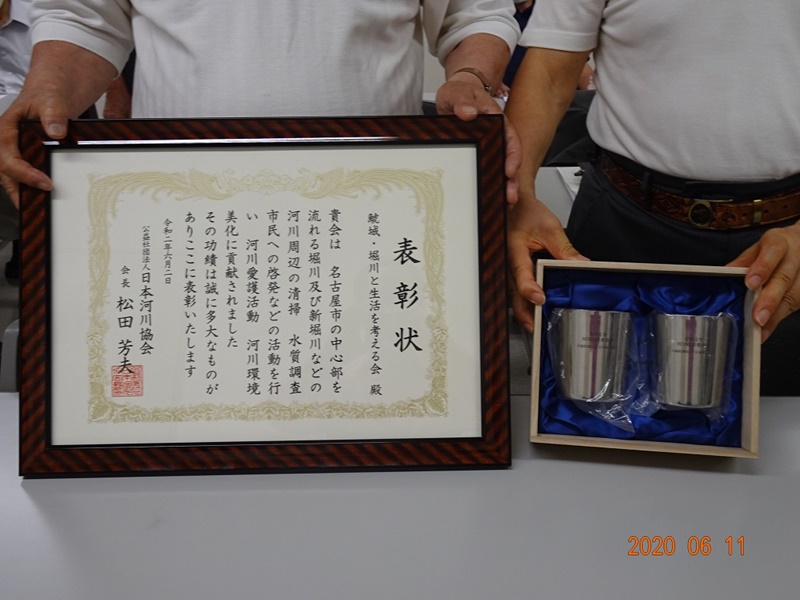 表彰状
鯱城・堀川と生活を考える会 殿
貴会は 名古屋市の中心部を
流れる堀川及び新堀川などの
河川周辺の清掃 水質調査
市民への啓発などの活動を行
い 河川愛護活動 河川環境
美化に貢献されました
その功績は誠に多大なものが
ありここに表彰いたします
令和二年六月二日
公益社団法人日本河川協会
会長 松田芳夫
2020 06 11